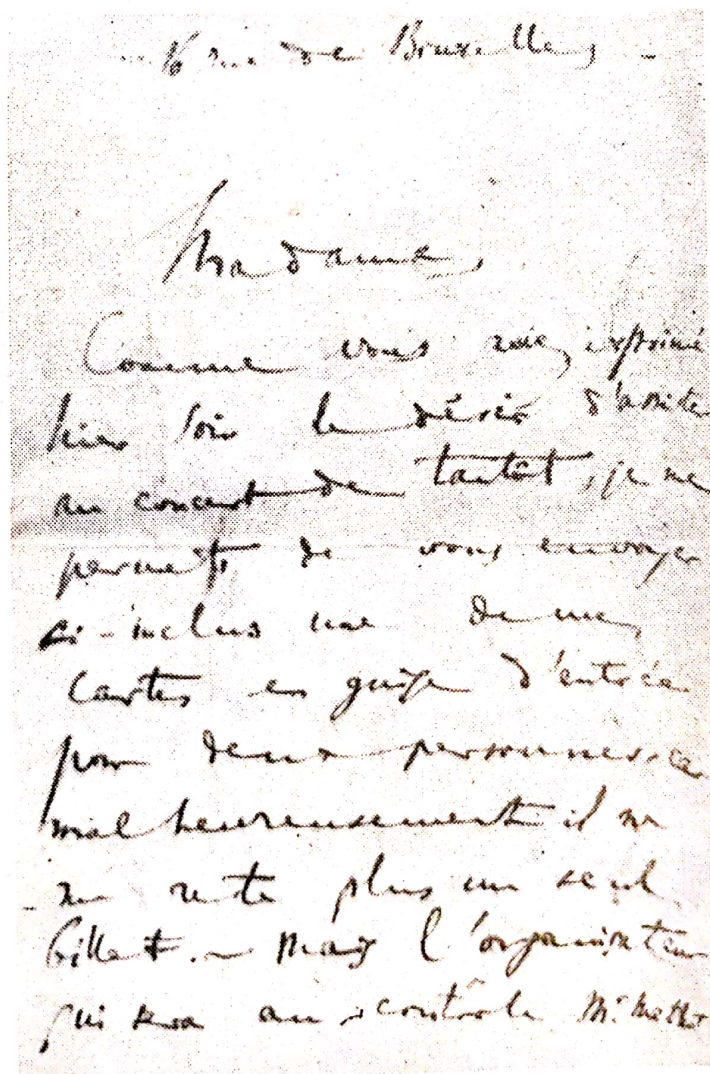 6 rue de Bruxelles
Madame,
Comme vous aviez exprimé
hier soir le désir d'assister
au concert de tantôt, je me
permets de vous envoyer
ci-inclus une de mes
cartes en guise d'entrée
pour deux personnes car
malheureusement il ne
me reste plus un seul
billet. — Mais l'organisateur
qui sera au contrôle Mr